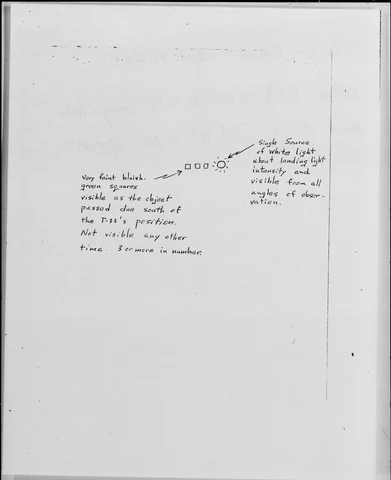 Single Source
of white light
about landing light
intensity and
visible from all
angles of obser-
vation.
Very faint bluish-
green squares
visible as the object
passed due south of
the T-33's position.
Not visible any other
time. 3 or more in number.